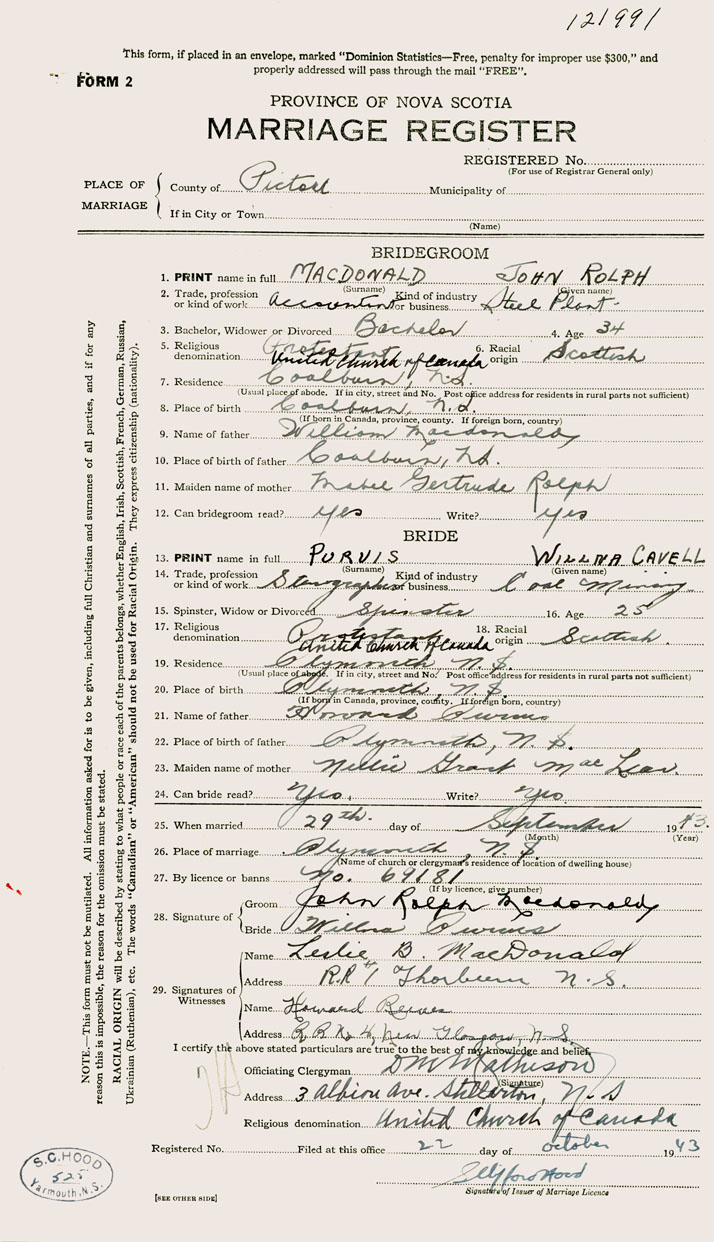 121991
This form, if placed in an envelope, marked "Dominion Statistics—Free, penalty for improper use $300," and
properly addressed will pass through the mail "FREE".
FORM 2
PROVINCE OF NOVA SCOTIA
MARRIAGE REGISTER
REGISTERED No.
(For use of Registrar General only)
PLACE OF MARRIAGE
County of Pictou Municipality of
If in City or Town
(Name)
BRIDEGROOM
1. PRINT name in full MACDONALD JOHN ROLPH
(Surname) (Given name)
2. Trade, profession or kind of work Accountant Kind of industry or business Steel Plant
3. Bachelor, Widower or Divorced Bachelor 4. Age 34
5. Religious denomination Protestant United Church of Canada 6. Racial origin Scottish
7. Residence Coalburn, N.S.
(Usual place of abode. If in city, street and No. Post office address for residents in rural parts not sufficient)
8. Place of birth Coalburn, N.S.
(If born in Canada, province, county. If foreign born, country)
9. Name of father William Macdonald
10. Place of birth of father Coalburn, N.S.
11. Maiden name of mother Mabel Gertrude Rolph
12. Can bridegroom read? yes Write? yes
BRIDE
13. PRINT name in full PURVIS WILLNA CAVELL
(Surname) (Given name)
14. Trade, profession or kind of work Stenographer Kind of industry or business Coal Mining
15. Spinster, Widow or Divorced Spinster 16. Age 25
17. Religious denomination Protestant United Church of Canada 18. Racial origin Scottish
19. Residence Plymouth, N.S.
(Usual place of abode. If in city, street and No. Post office address for residents in rural parts not sufficient)
20. Place of birth Plymouth, N.S.
(If born in Canada, province, county. If foreign born, country)
21. Name of father Howard Purvis
22. Place of birth of father Plymouth, N.S.
23. Maiden name of mother Nellie Grant
24. Can bride read? Yes. Write? Yes.
25. When married 29th. day of September 1943.
(Month) (Year)
26. Place of marriage Plymouth, N.S.
(Name of church or clergyman's residence of location of dwelling house)
27. By licence or banns No. 69181
(If by licence, give number)
28. Signature of Groom John Rolph Macdonald
Bride Willna Purvis
29. Signatures of Witnesses
Name Leslie B. MacDonald
Address R.R#1 Thorburn N.S.
Name Howard
Address R.R No 4, New Glasgow, N.S.
I certify the above stated particulars are true to the best of my knowledge and belief.
Officiating Clergyman D M Mathieson
(Signature)
Address 3 Albion Ave. Stellarton, N.S
Religious denomination United Church of Canada
Registered No. Filed at this office 22 day of October 1943
Signature of Issuer of Marriage Licence
[SEE OTHER SIDE]
S.C. HOOD
525
Yarmouth, N.S.
NOTE.—This form must not be mutilated. All information asked for is to be given, including full Christian and surnames of all parties, and if for any
reason this is impossible, the reason for the omission must be stated.
RACIAL ORIGIN will be described by stating to what people or race each of the parents belongs, whether English, Irish, Scottish, French, German, Russian,
Ukrainian (Ruthenian), etc. The words "Canadian" or "American" should not be used for Racial Origin. They express citizenship (nationality).